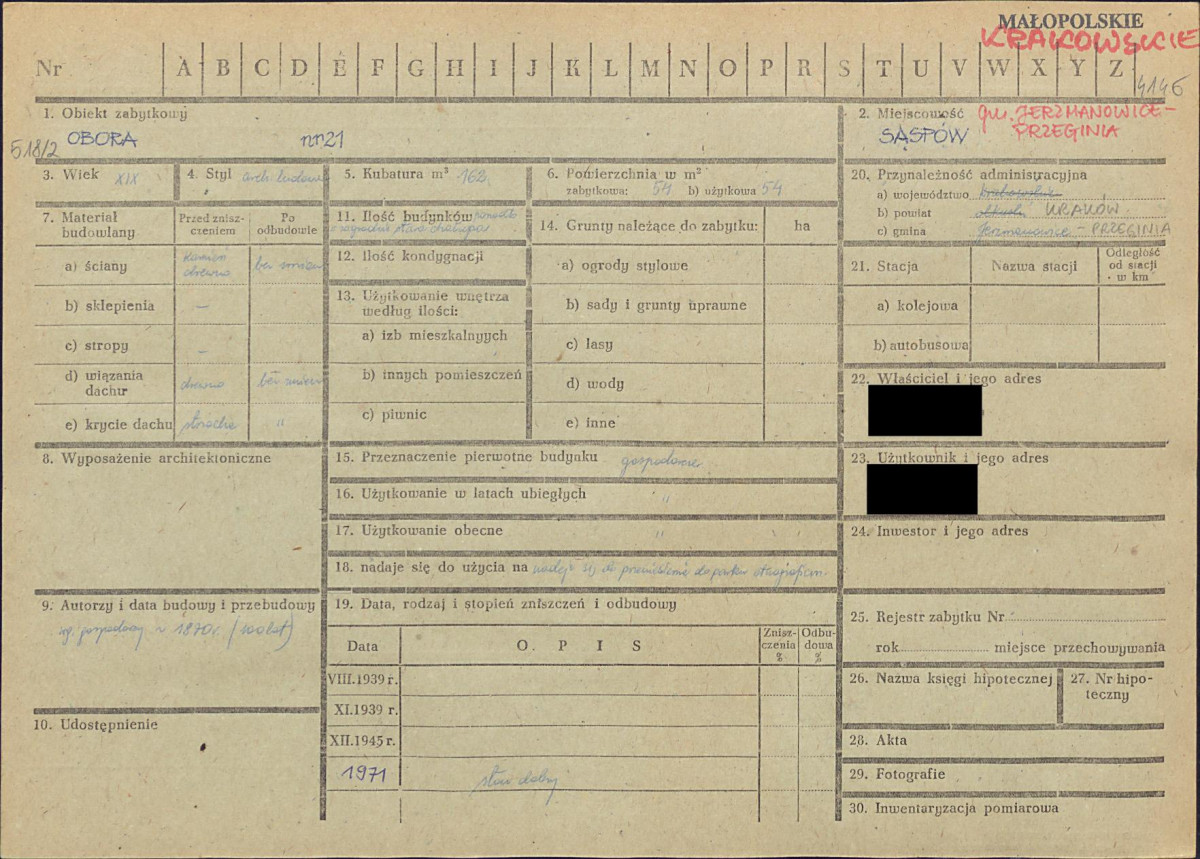 MAŁOPOLSKIE
KRAKOWSKIE
Nr A B C D E F G H I J K L M N O P R S T U V W X Y Z
4146
1. Obiekt zabytkowy
OBORA nr 21
518/2
2. Miejscowość gm. JERZMANOWICE-
PRZEGINIA
SĄSPÓW
3. Wiek XIX
4. Styl arch. ludowa
5. Kubatura m³ 162
6. Powierzchnia w m²
zabytkowa: 54 b) użytkowa 54
20. Przynależność administracyjna
a) województwo krakowskie
b) powiat olkuski KRAKÓW
c) gmina Jerzmanowice - PRZEGINIA
7. Materiał
budowlany
Przed znisz-
czeniem
Po
odbudowie
a) ściany kamień
drewno bez zmian
b) sklepienia –
c) stropy –
d) wiązania
dachu drewno bez zmian
e) krycie dachu strzecha "
11. Ilość budynków ponadto
w zagrodzie stara chałupa
12. Ilość kondygnacji
13. Użytkowanie wnętrza
według ilości:
a) izb mieszkalnyych
b) innych pomieszczeń
c) piwnic
14. Grunty należące do zabytku: ha
a) ogrody stylowe
b) sady i grunty uprawne
c) lasy
d) wody
e) inne
21. Stacja Nazwa stacji Odległość
od stacji
w km
a) kolejowa
b) autobusowa
22. Właściciel i jego adres
23. Użytkownik i jego adres
24. Inwestor i jego adres
8. Wyposażenie architektoniczne
15. Przeznaczenie pierwotne budynku gospodarcze
16. Użytkowanie w latach ubiegłych "
17. Użytkowanie obecne "
18. nadaje się do użycia na nadaje się do przeniesienia do parku etnograficzn.
9. Autorzy i data budowy i przebudowy
wg. gospodarzy w 1870 r. (100 lat)
10. Udostępnienie
19. Data, rodzaj i stopień zniszczeń i odbudowy
Data O P I S Znisz-
czenia
% Odbu-
dowa
%
VIII.1939 r.
XI.1939 r.
XII.1945 r.
1971 stan dobry
25. Rejestr zabytku Nr
rok miejsce przechowywania
26. Nazwa księgi hipotecznej
27. Nr hipo-
teczny
28. Akta
29. Fotografie
30. Inwentaryzacja pomiarowa